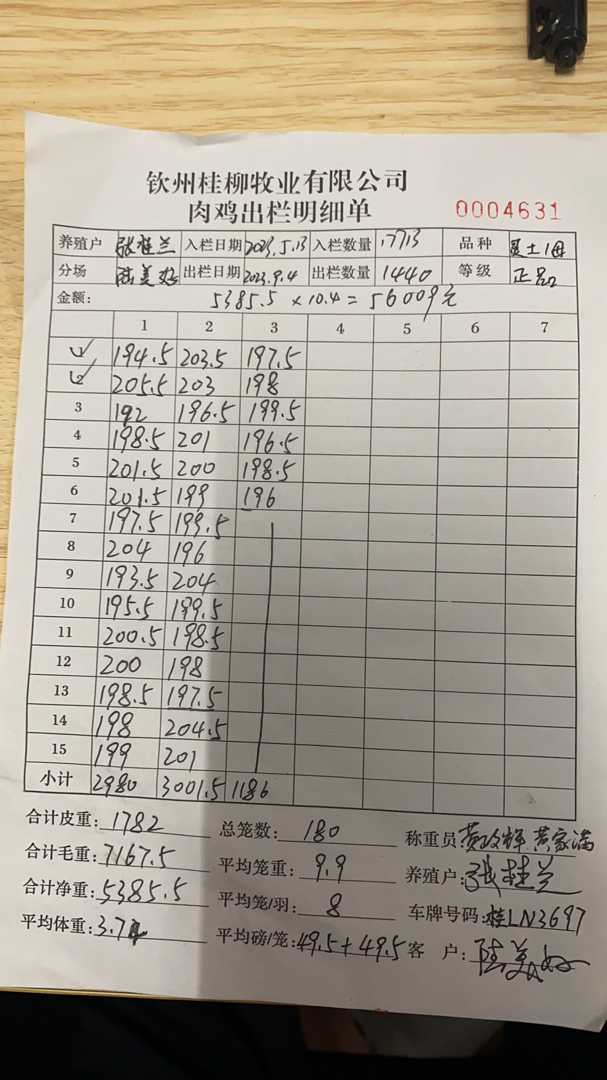 钦州桂柳牧业有限公司
肉鸡出栏明细单 0004631
养殖户 张桂兰 入栏日期 2023.5.13 入栏数量 17713 品种 土1母
分场 陆美好 出栏日期 2023.9.4 出栏数量 1440 等级 正品
金额: 5385.5 × 10.4 = 56009元
1 2 3 4 5 6 7
1 194.5 203.5 197.5
2 205.5 203 198
3 192 196.5 199.5
4 198.5 201 196.5
5 201.5 200 198.5
6 201.5 199 196
7 197.5 199.5
8 204 196
9 193.5 204
10 195.5 199.5
11 200.5 198.5
12 200 198
13 198.5 197.5
14 198 204.5
15 199 201
小计 2980 3001.5 1186
合计皮重: 1782 总笼数: 180 称重员 黄政辉 黄家满
合计毛重: 7167.5 平均笼重: 9.9 养殖户: 张桂兰
合计净重: 5385.5 平均笼/羽: 8 车牌号码: 桂LN3697
平均体重: 3.74 平均磅/笼: 49.5+49.5 客 户: 陆美好